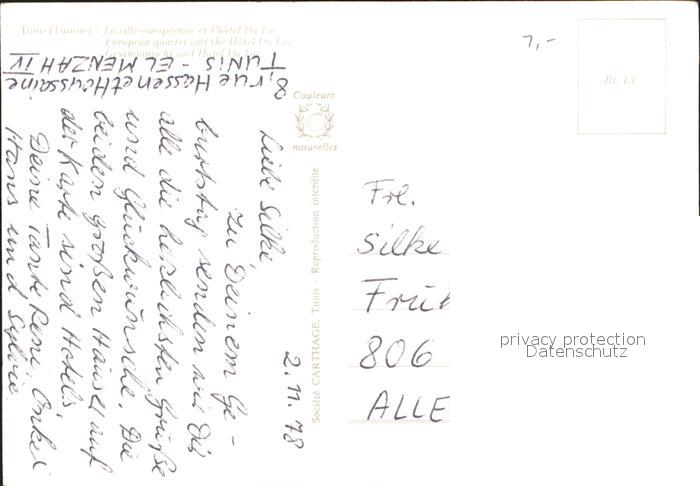 Tunis (Tunisie) : La ville européenne et l'hôtel Du Lac
European quarter and the Hôtel Du Lac
Gesamtansicht und Hotel Du Lac
8, rue Hassen et Houssaine
TUNIS - EL MENZAH IV
2.11.78
Liebe Silke,
Zu Deinem Ge-
burtstag senden wir Dir
alle die herzlichsten Grüße
und Glückwünsche. Die
beiden großen Häuser auf
der Karte sind Hotels.
Deine Tante Reni, Onkel
Hans und Sylvie.
Couleurs
C
naturelles
Société CARTHAGE, Tunis - Reproduction interdite
1,-
Rt. 15
Frl.
Silke
Früh
806
ALLE
privacy protection
Datenschutz